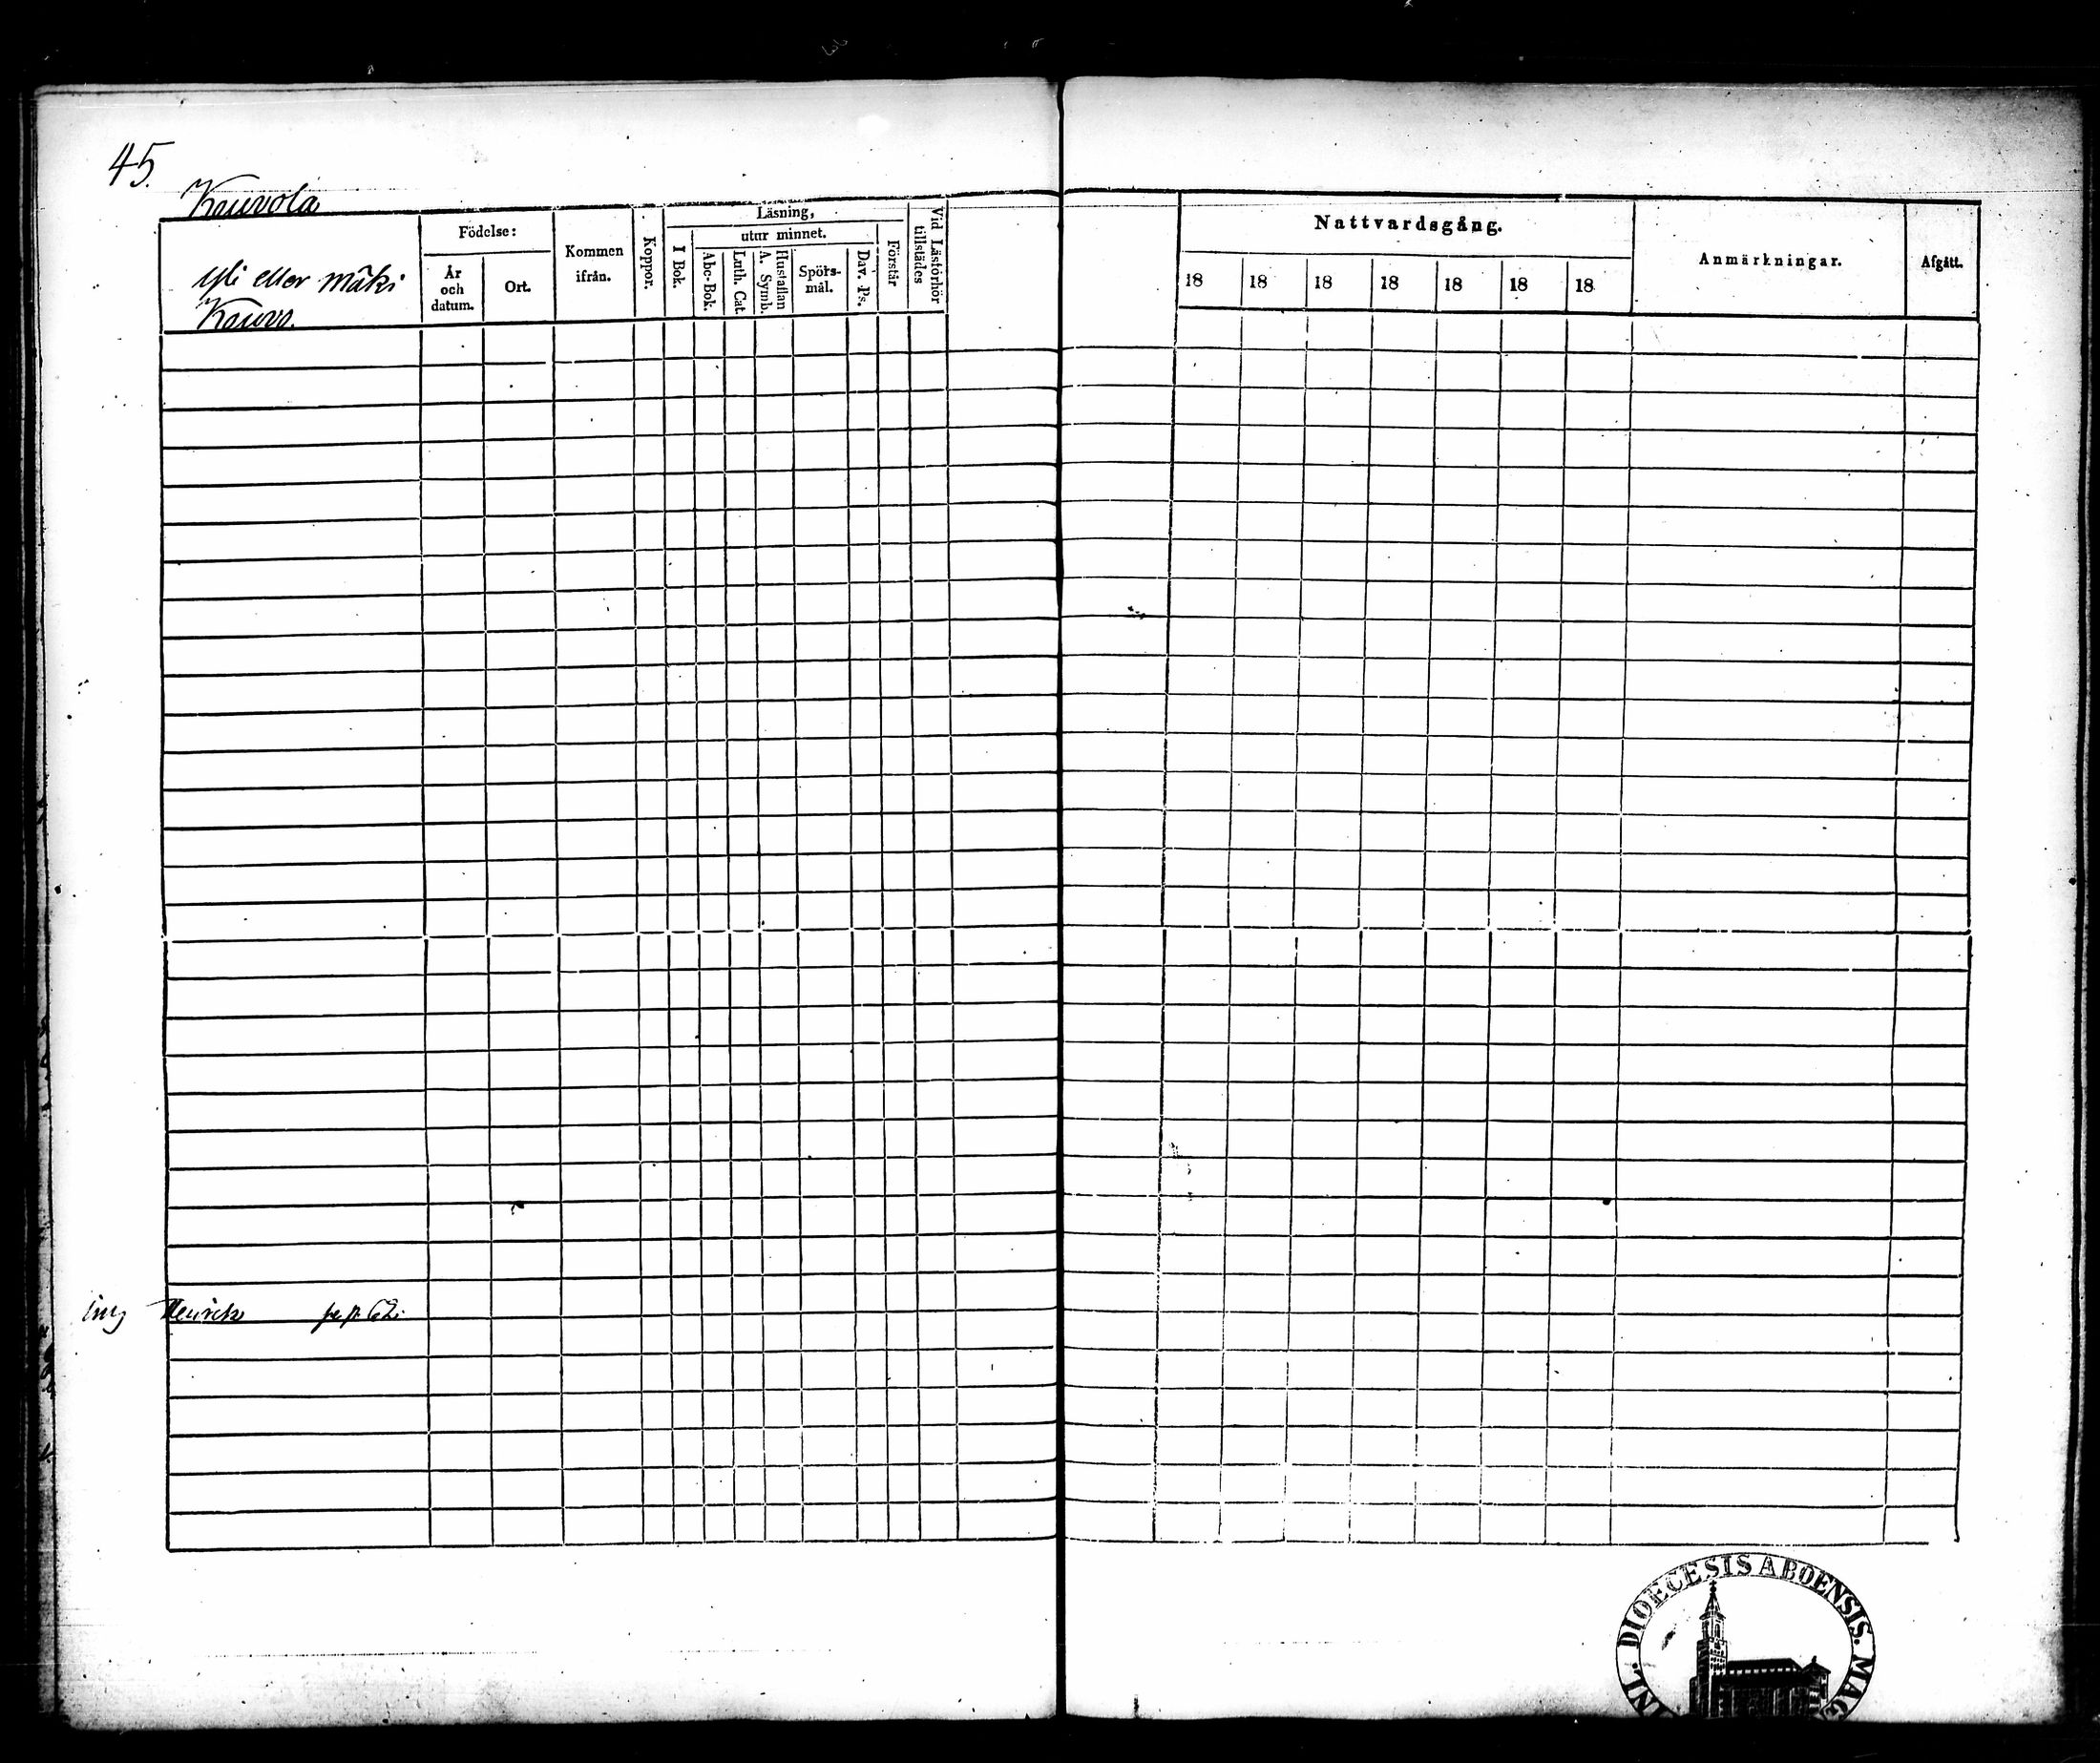 45.
Kauvola
Yli eller Mäki
Kauvo.
Födelse:
År
och
datum.
Ort.
Kommen
ifrån.
Koppor.
Läsning,
I Bok.
utur minnet.
Abc-Bok.
Luth. Cat.
Hustaflan
A. Symb.
Spörs-
mål.
Dav. Ps.
Förstår
Vid Läsförhör
tillstädes
Nattvardsgång.
18 18 18 18 18 18 18
Anmärkningar.
Afgått.
Henrik
DIOECESIS ABOENSIS.